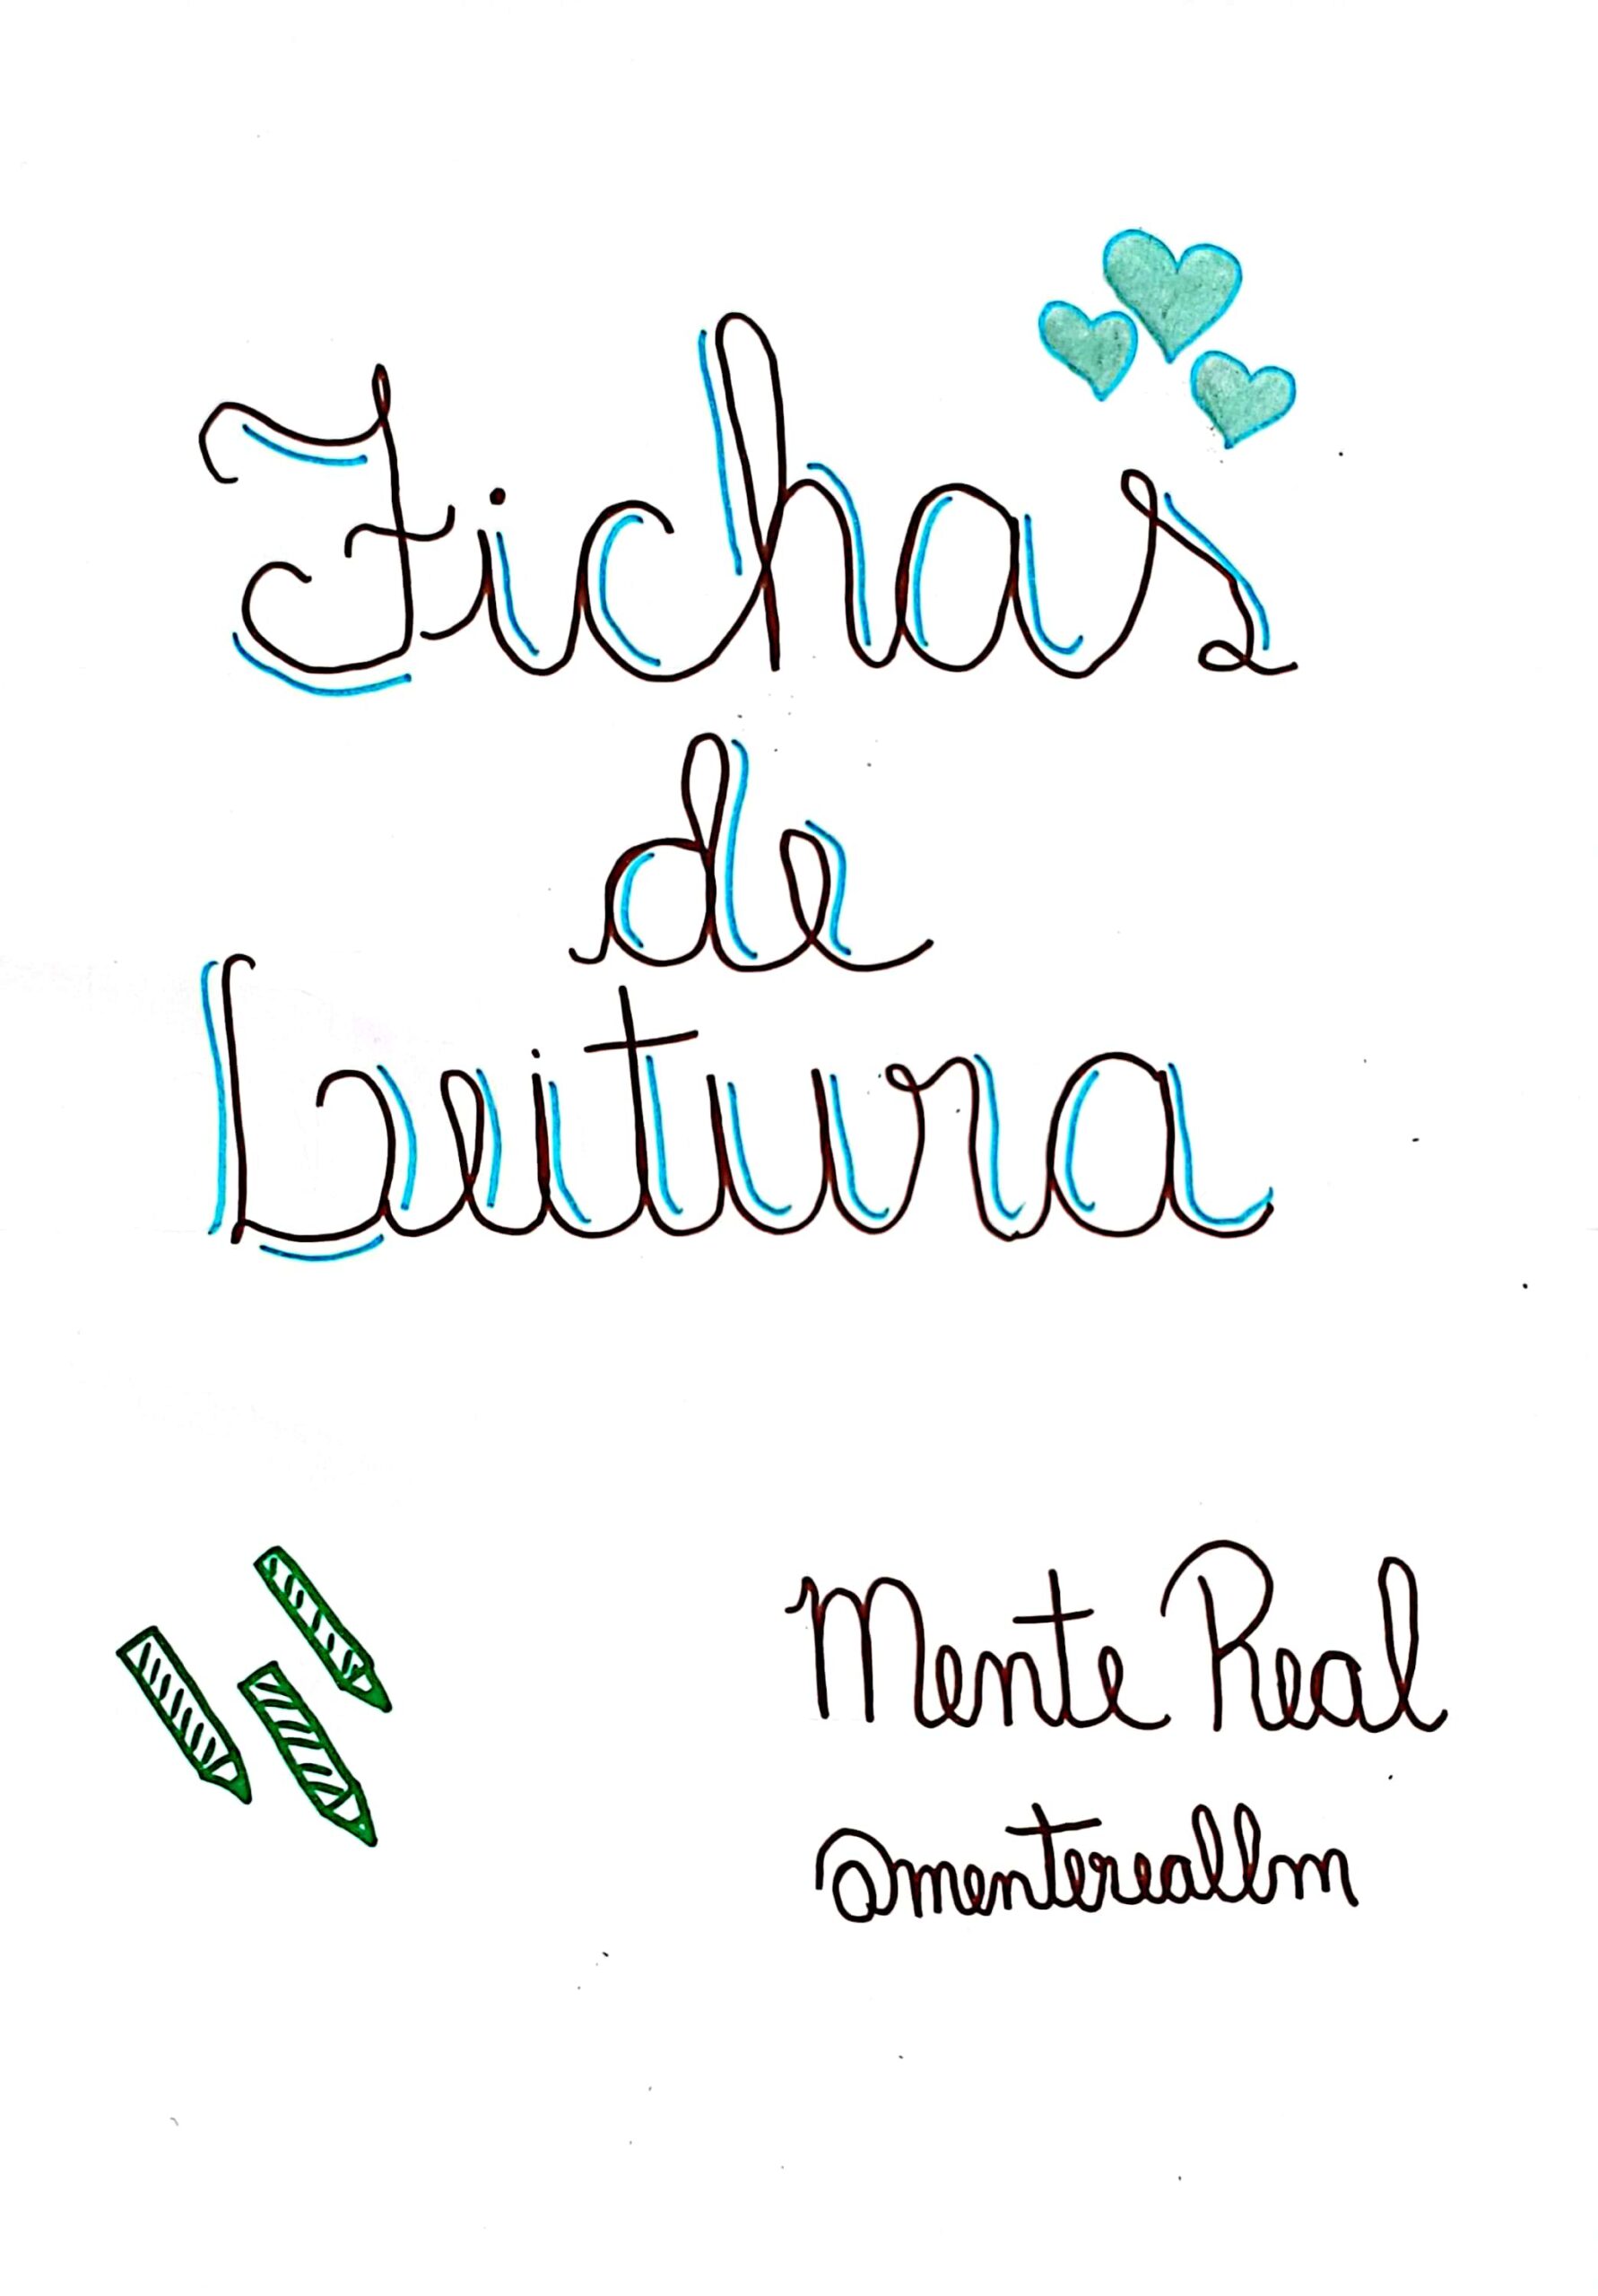 Fichas
de
Leitura
Mente Real
@mentereallm